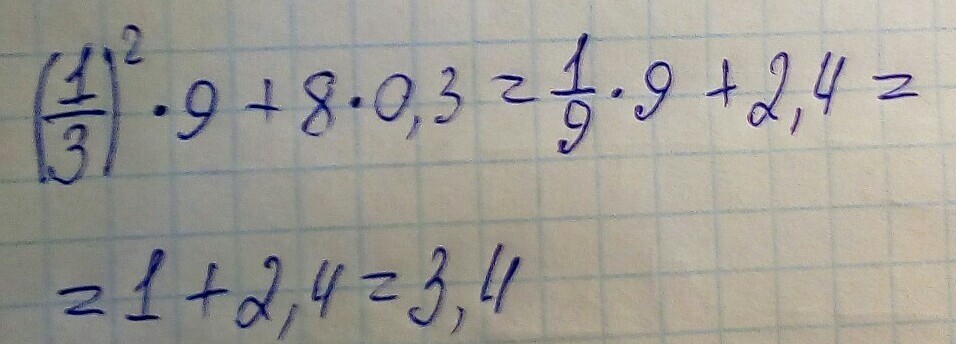 (1/3)² · 9 + 8 · 0,3 = 1/9 · 9 + 2,4 =
= 1 + 2,4 = 3,4